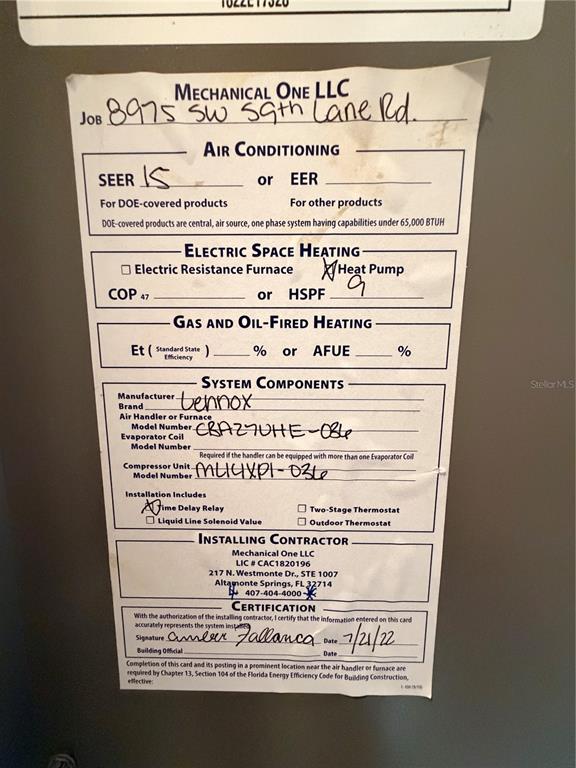 MECHANICAL ONE LLC
JOB 8975 SW 59th Lane Rd.
AIR CONDITIONING
SEER 15 or EER
For DOE-covered products For other products
DOE-covered products are central, air source, one phase system having capabilities under 65,000 BTUH
ELECTRIC SPACE HEATING
Electric Resistance Furnace Heat Pump
COP 47 or HSPF 9
GAS AND OIL-FIRED HEATING
Et ( Standard State Efficiency ) % or AFUE %
SYSTEM COMPONENTS
Manufacturer
Brand Lennox
Air Handler or Furnace
Model Number CBA27UHE-036
Evaporator Coil
Model Number
Required if the handler can be equipped with more than one Evaporator Coil
Compressor Unit
Model Number ML14XP1-036
Installation Includes
Time Delay Relay Two-Stage Thermostat
Liquid Line Solenoid Value Outdoor Thermostat
INSTALLING CONTRACTOR
Mechanical One LLC
LIC # CAC1820196
217 N. Westmonte Dr., STE 1007
Altamonte Springs, FL 32714
407-404-4000
CERTIFICATION
With the authorization of the installing contractor, I certify that the information entered on this card
accurately represents the system installed
Signature Amber Fallanca Date 7/21/22
Building Official Date
Completion of this card and its posting in a prominent location near the air handler or furnace are
required by Chapter 13, Section 104 of the Florida Energy Efficiency Code for Building Construction,
effective:
StellarMLS